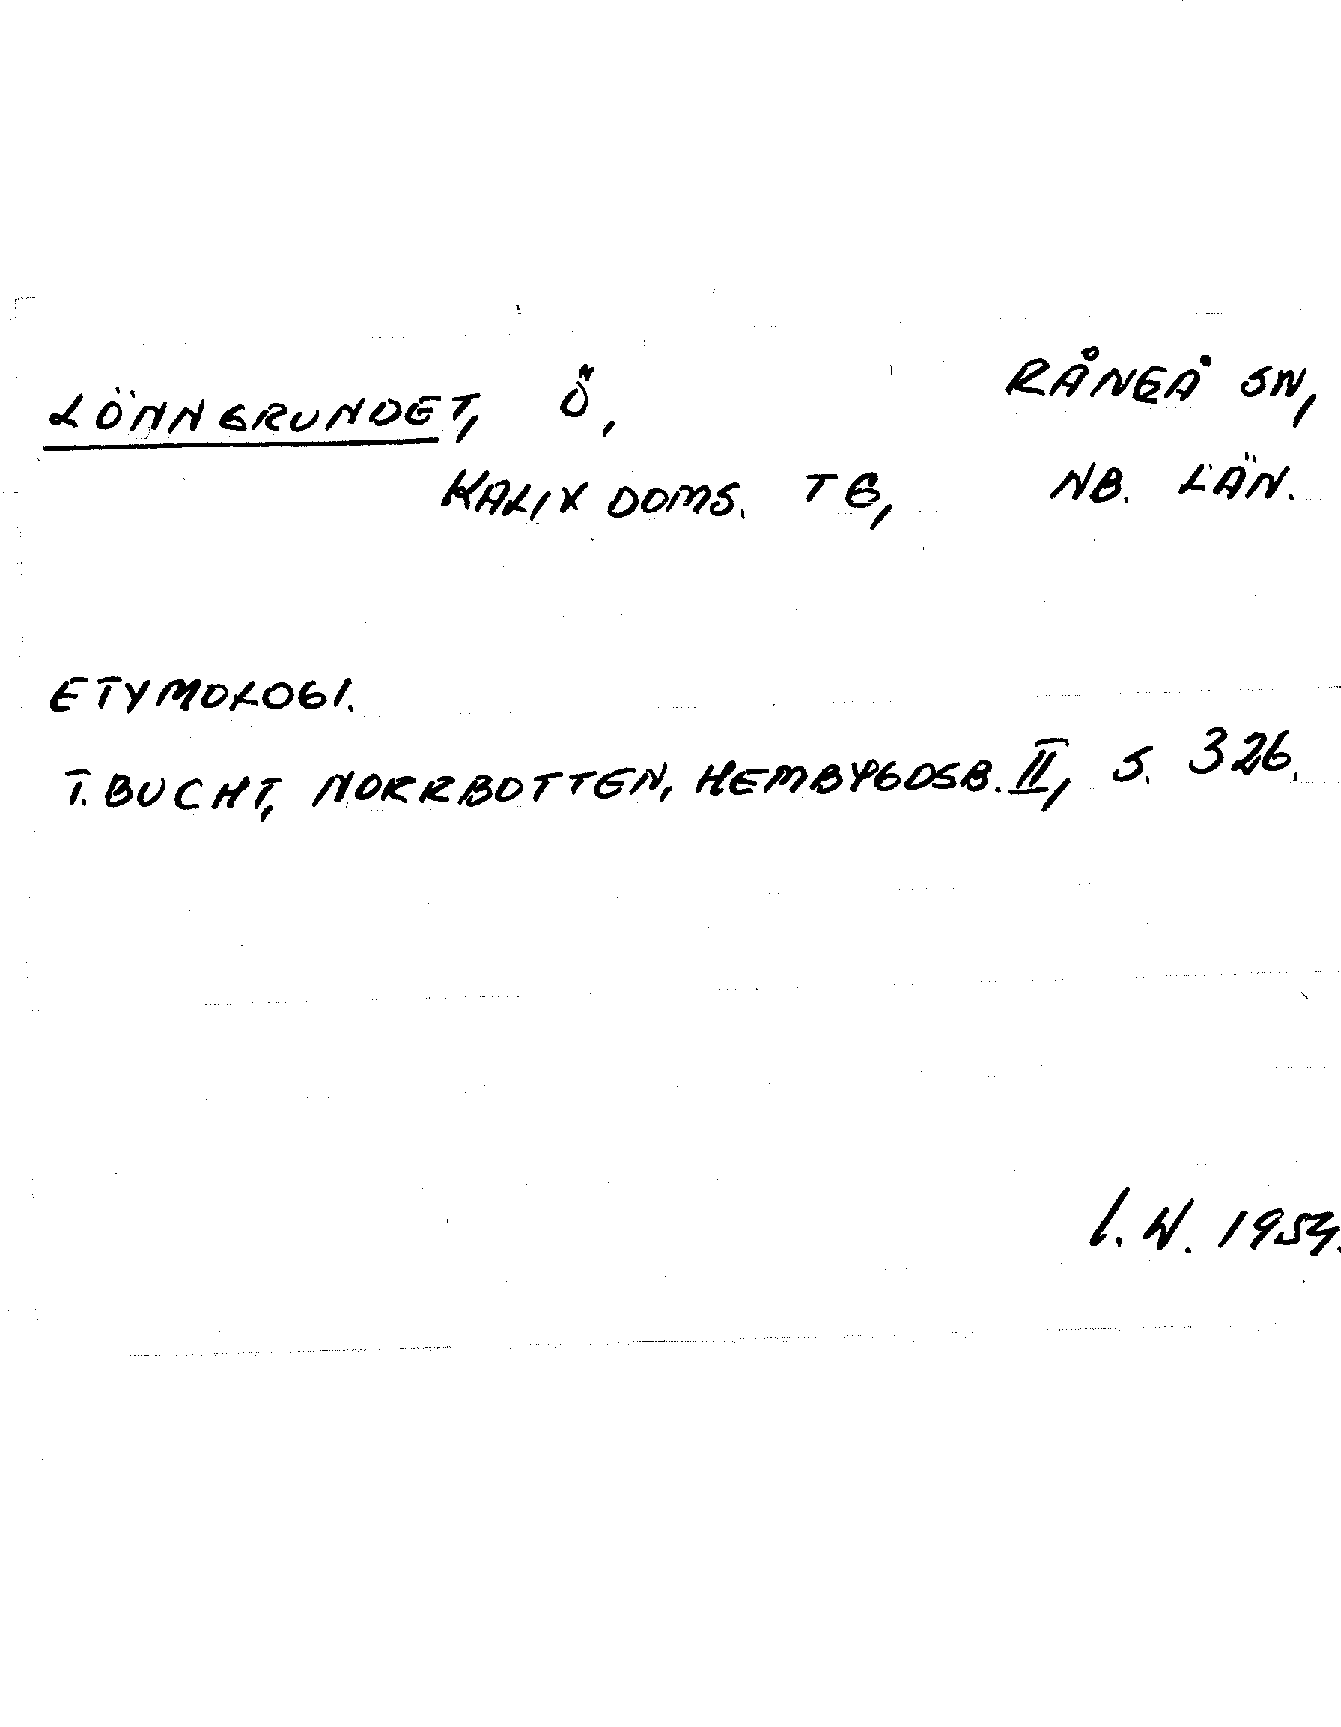 LÖNNGRUNDET, Ö, RÅNEÅ SN,
KALIX DOMS. TG, NB. LÄN.
ETYMOLOGI.
T. BUCHT, NORRBOTTEN, HEMBYGDSB. II, S. 326.
I. W. 1954.